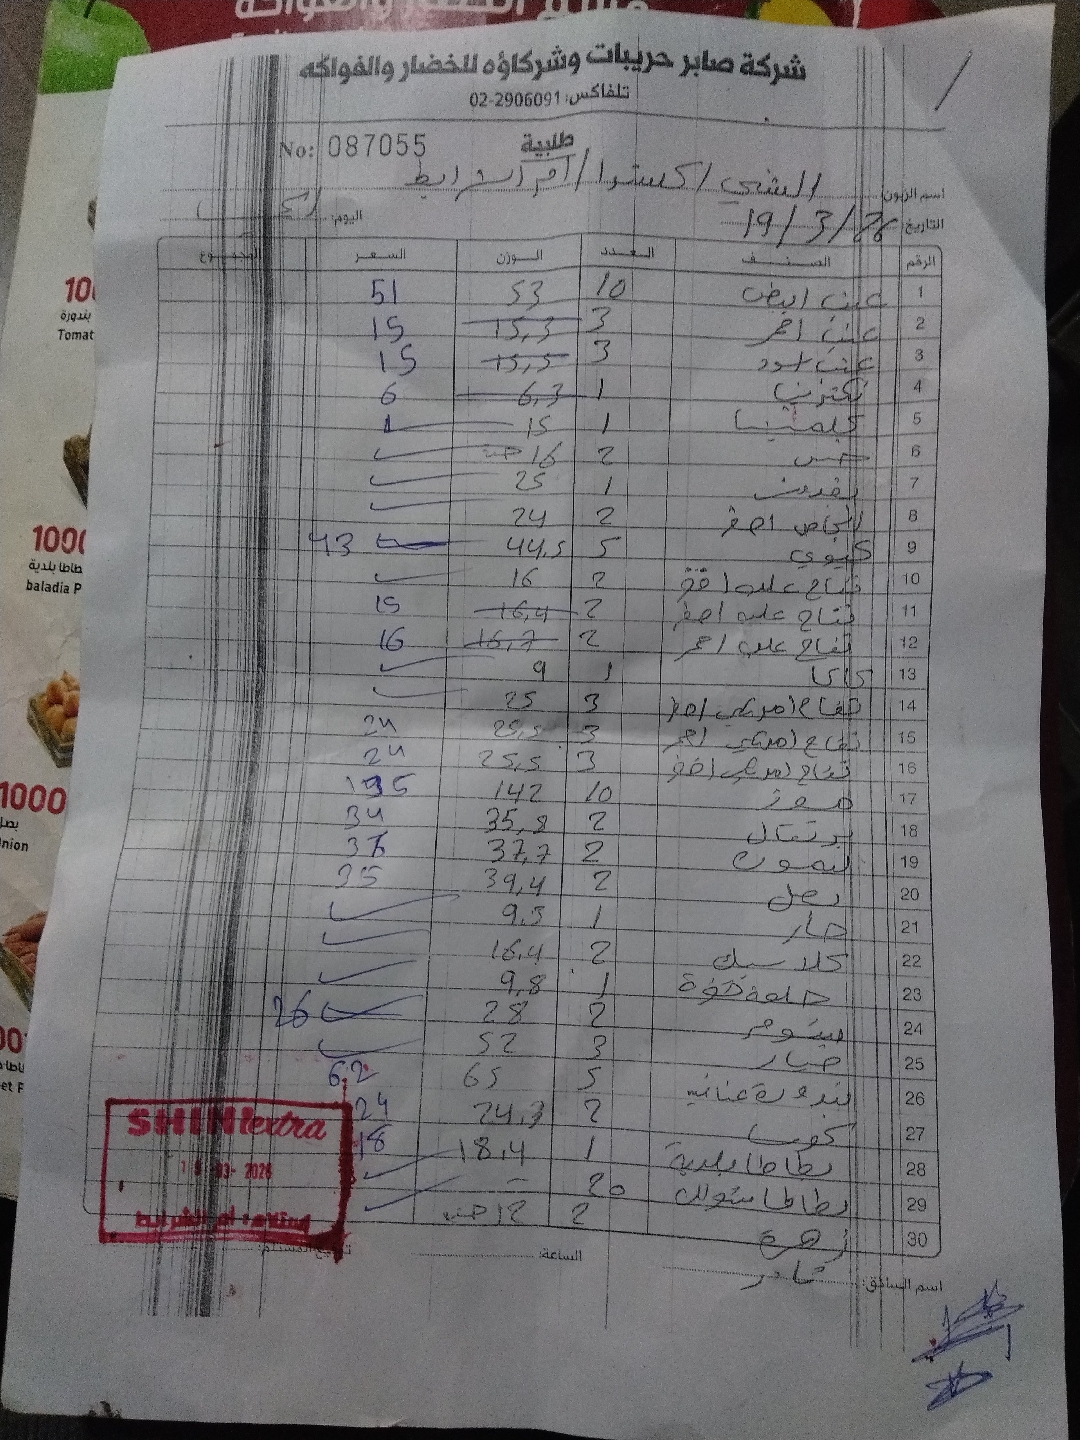 شركة صابر حريبات وشركاؤه للخضار والفواكه
تلفاكس: 02-2906091
طلبية
No: 087055
اسم الزبون: الشني / اكسترا / ام الشرايط
التاريخ: 19/3/26 اليوم:
الرقم الصنف العدد الوزن السعر المجموع
1 عنب ابيض 10 53 51
2 عنب احمر 3 15,3 15
3 عنب اسود 3 15,5 15
4 نكترينا 1 6,3 6
5 كلمنتينا 1 15
6 خس 2 16 حبة
7 بقدونس 1 25
8 اجاص اصفر 2 24
9 كيوي 5 44,5 43
10 تفاح علب 2 16
11 تفاح علب اصفر 2 16,4 15
12 تفاح علب احمر 2 16,7 16
13 كاكا 1 9
14 تفاح امريكي اصفر 3 25
15 تفاح امريكي احمر 3 25,5 24
16 تفاح امريكي اخضر 3 25,5 24
17 موز 10 142 135
18 برتقال 2 35,8 34
19 ليمون 2 37,7 36
20 بصل 2 39,4 35
21 حار 1 9,5
22 كلاسيك 2 16,4
23 حلوة 1 9,8
24 28 2 26
25 خيار 3 52
26 بندورة عنانيد 5 65 62
27 كوسا 2 24,3 24
28 بطاطا بلدية 1 18,4 18
29 بطاطا 20 -
30 زهرة 2 12 حبة
اسم السائق: ثائر الساعة: توقيع المستلم:
SHINI extra
03- 2026
استلام: ام الشرايط
1000
بندورة
Tomat
1000
طاطا بلدية
baladia P
1000
بصل
nion